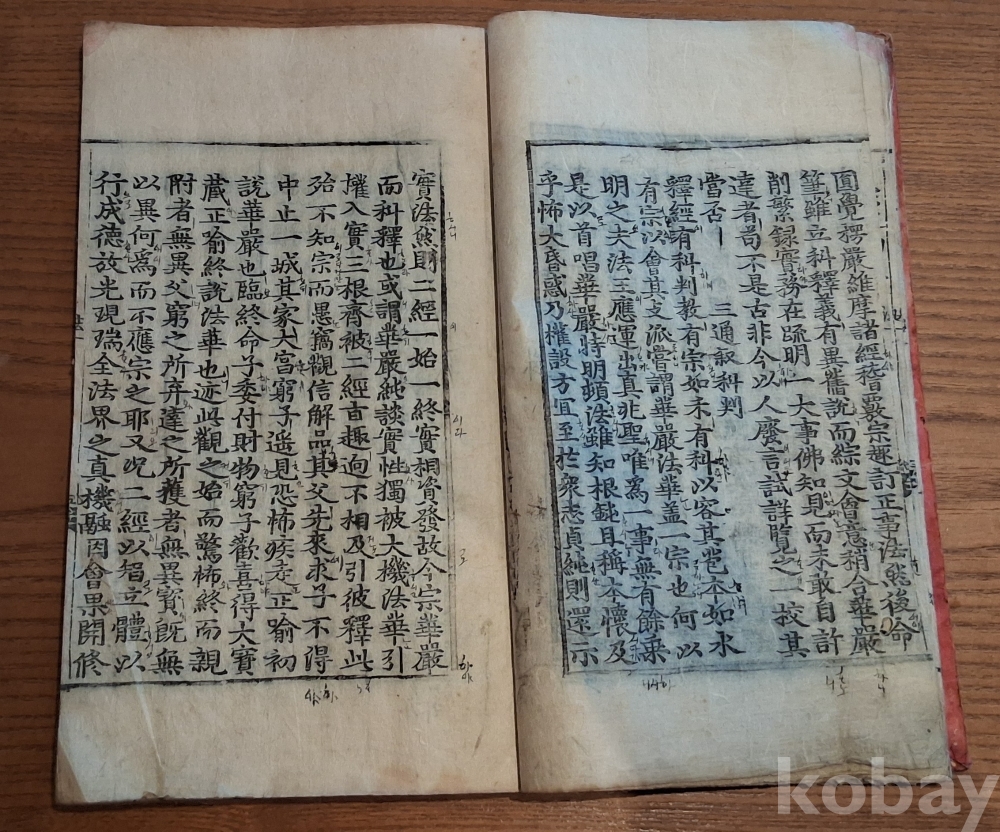 圓覺楞嚴維摩諸經稽覈宗趣訂正章法然後命
筆雖立科釋義有異舊說而綜文會意稍合華嚴
削繁録實務在䟽明一大事佛知見而未敢自計
達者苟不是古非今以人廢言試詳覽之一挍其
當否
三通叙科判
釋經有科判教有宗如禾有科以容其苞本如水
有宗以會其支派嘗謂華嚴法華盖一宗也何以
明之夫法王應運出真兆聖唯爲一事無有餘乗
是以首唱華嚴特明頓法雖知根鈍且稱本懷及
乎怖大昏惑乃權設方宜至於衆志貞純則還示
實法然則二經一始一終實相資發故今宗華嚴
而科釋也或謂華嚴純談實性獨被大機法華引
攉入實三根齊被二經旨趣逈不相及引彼釋此
殆不知宗而愚竊觀信解品其父先來求子不得
中止一城其家大富窮子遥見恐怖疾走正喻初
說華嚴也臨終命子委付財物窮子歡喜得大寶
藏正喻終說法華也迹此觀之始而驚怖終而親
附者無異父窮之所弃達之所獲者無異寶旣無
以異何爲而不應宗之耶又况二經以智立體以
行成德放光現瑞全法界之真機融因會果開修
kobay